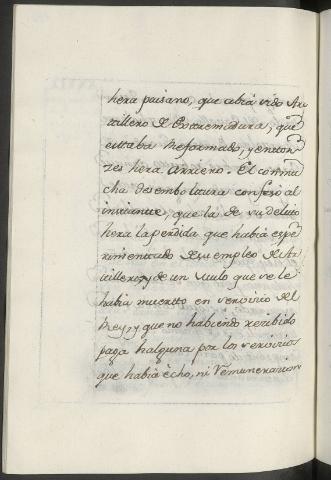 hera paisano, que abia sido Ar
tillero de Extremadura, que
estaba Reformado, y enton
zes hera Arriero. El con mu
cha desemboltura confesó al
instante, que la de su delito
hera la perdida que habia espe
rimentado de su empleo de Ar
tillero, y de un Mulo que se le
habia muerto en servisio del
Rey, y que no habiendo resibido
paga halguna por los servisios
que habia echo, ni Remunerasion